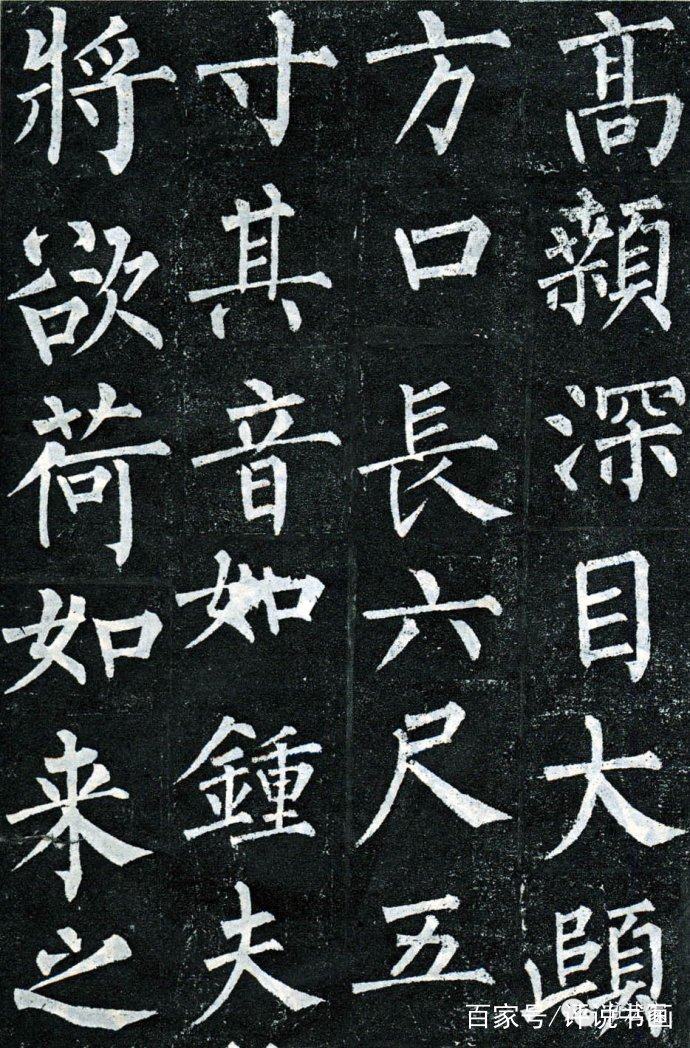 髙顙深目大頤
方口長六尺五
寸其音如鍾夫
將欲荷如来之
百家号/评说书画